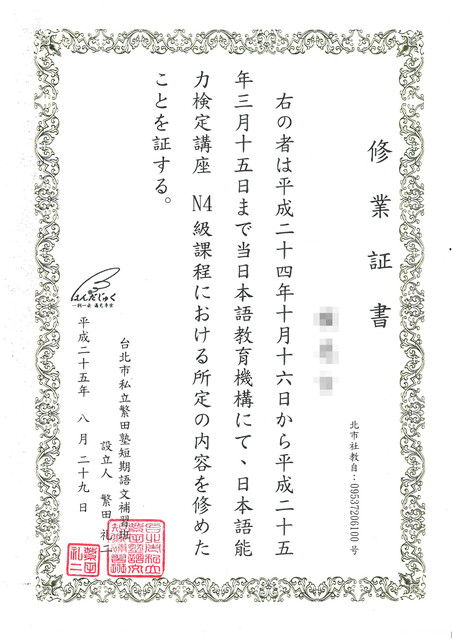 修業証書
北市社教自：09537206100号
右の者は平成二十四年十月十六日から平成二十五
年三月十五日まで当日本語教育機構にて、日本語能
力検定講座 N4級課程における所定の内容を修めた
ことを証する。
台北市私立繁田塾短期語文補習班
設立人 繁田 礼二
はんだじゅく
平成二十五年 八月 二十九日